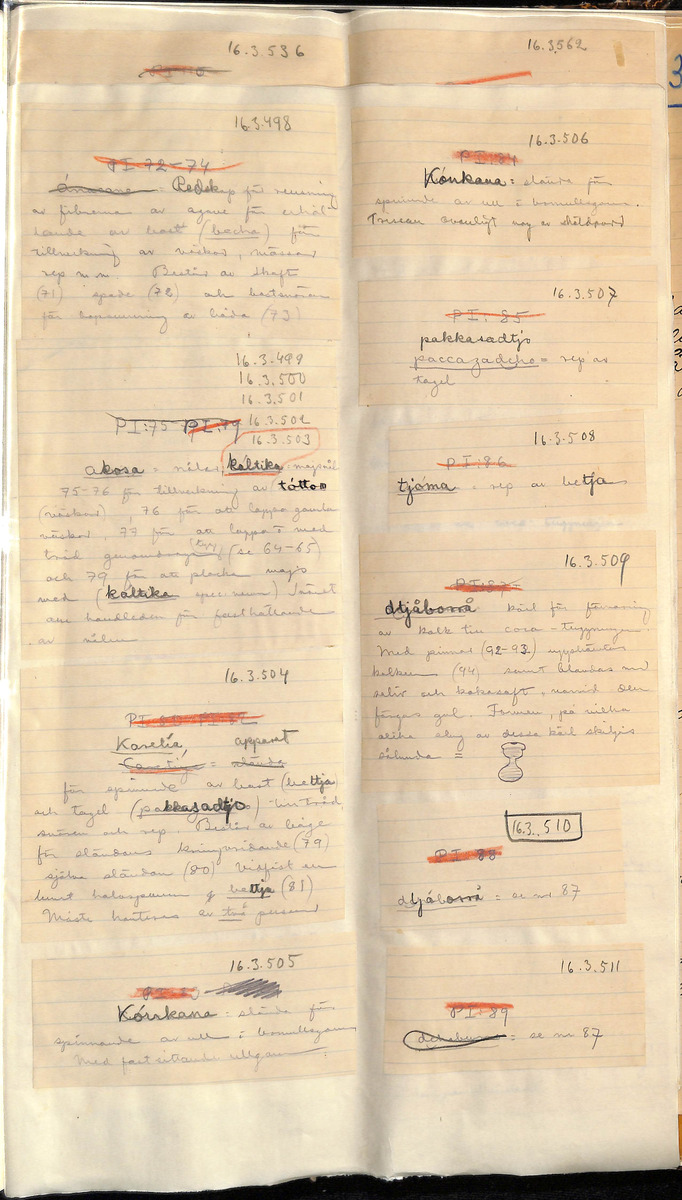 16.3.536
16.3.498
PI 72-74
= Redskap för rensning
av fibrerna av agave för erhål-
lande av bast (becha) för
tillverkning av väskor, mössor
rep m m. Består av skaft
(71) spade (72) och bastsnöre
för hopsurrning av båda (73)
16.3.499
16.3.500
16.3.501
16.3.502
PI:75 PI:79
16.3.503
akosa = nålar, káltika = majsnål
75-76 för tillverkning av tótton
(väskor), 76 för att lappa gamla
väskor, 77 för att lappa med
tråd genomdragen (se 64-65)
och 79 för att plocka majs
med (káltika specimen) Fästet
om handleden för fasthållande
av nålen
16.3.504
Karelía, apparat
= slända
för spinnande av bast (bettja
och tagel (pakkasadtjo) till tråd,
snören och rep. Består av båge
för sländans kringvridande (79)
själva sländan (80) Vidfist en
bettja (81)
Måste hanteras av två personer
16.3.505
Kónkana = slända för
spinnande av ull o bomullsgarn
Med fastsittande ullgarn
16.3.562
16.3.506
PI:84
Kónkana = slända för
spinnande av ull o bomullsgarn.
Trissan ovanligt nog av sköldpadd
16.3.507
PI:85
pakkasadtjo
paccazadcho = rep av
tagel
16.3.508
PI:86
tjóma = rep av bettja
16.3.509
PI:87
dtjáborrå kärl för förvaring
av kalk till coca-tuggningen
Med pinnar (92-93) upphämtas
kalken (94) samt blandas med
saliv och kokasaft, varvid den
färgas gul. Formen, på vilka
olika slag av dessa kärl skiljes
sålunda =
16.3.510
PI:88
dtjáborrå = se nr 87
16.3.511
PI:89
= se nr 87